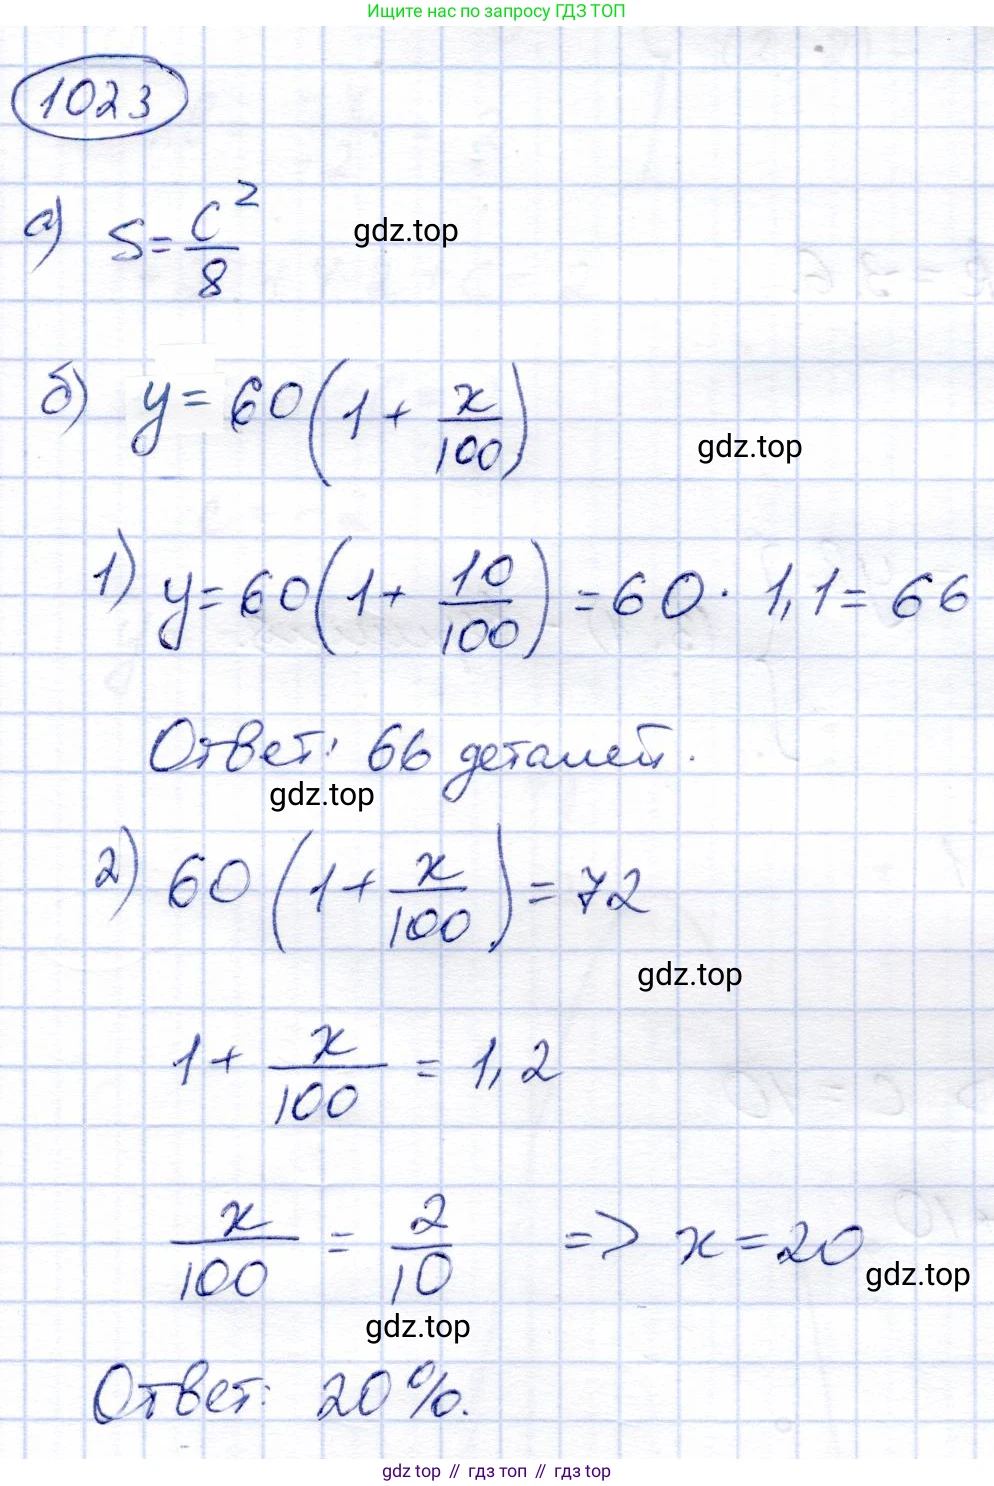 Ищите нас по запросу ГДЗ ТОП
1023
а) S = c²/8
gdz.top
б) y = 60(1 + x/100)
gdz.top
1) y = 60(1 + 10/100) = 60 · 1,1 = 66
Ответ: 66 деталей.
gdz.top
2) 60(1 + x/100) = 72
gdz.top
1 + x/100 = 1,2
x/100 = 2/10 => x = 20
gdz.top
gdz.top
Ответ: 20%.
gdz top // гдз топ // гдз top